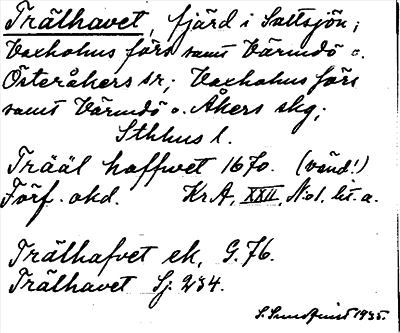 Trälhavet, fjärd i Saltsjön;
Vaxholms förs samt Värmdö o.
Österåkers sr; Vaxholms förs
samt Värmdö o. Åkers skg;
Sthlms l.
Trääl haffwet 1670. (vänd!)
Förf. okd. KrA, XXII, N:o 1, lit. a.
Trälhafvet ek, G. 76.
Trälhavet Sj. 234.
S. Sundquist 1935.